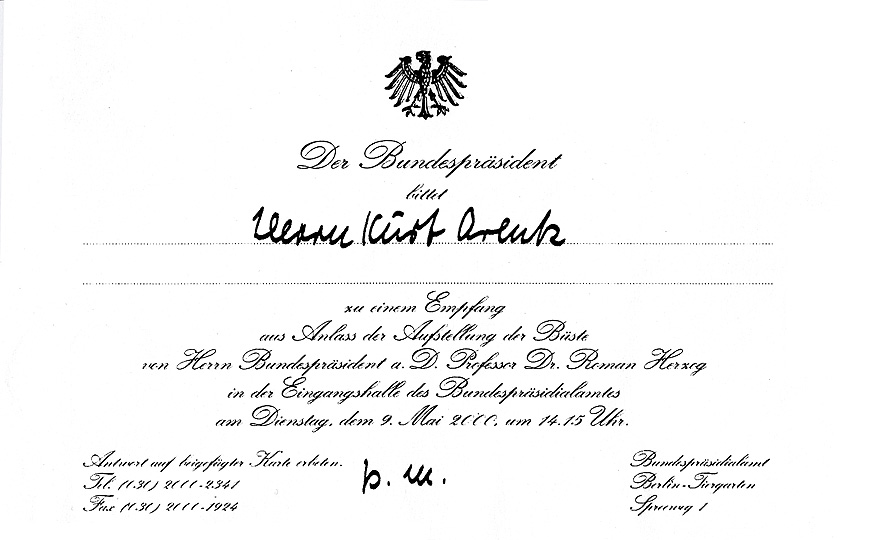 Der Bundespräsident
bittet
Herrn Kurt Arentz
zu einem Empfang
aus Anlass der Aufstellung der Büste
von Herrn Bundespräsident a. D. Professor Dr. Roman Herzog
in der Eingangshalle des Bundespräsidialamtes
am Dienstag, dem 9. Mai 2000, um 14.15 Uhr.
Antwort auf beigefügter Karte erbeten.
Tel: (030) 2000-2341
Fax (030) 2000-1924
p. m.
Bundespräsidialamt
Berlin-Tiergarten
Spreeweg 1